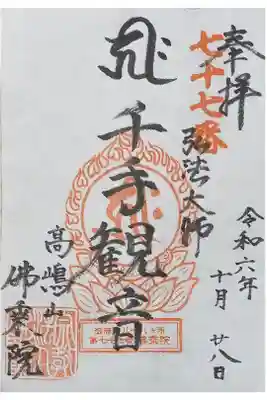 奉拝
七十七番
弘法大師
千手観音
令和六年
十月 廿八日
高嶋山
佛乗院